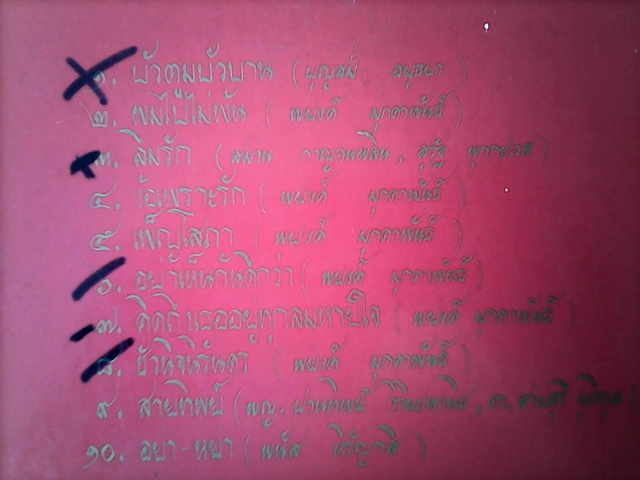 ๑. บัวตูมบัวบาน (บุญสม อยุธยา)
๒. ผมไปไม่พ้น (พยงค์ มุกดาพันธ์)
๓. ลืมรัก (สมาน กาญจนผลิน, สุรัฐ พุกกะเวส)
๔. เพราะรัก (พยงค์ มุกดาพันธ์)
๕. เพ็ญโสภา (พยงค์ มุกดาพันธ์)
๖. อย่าเห็นกันดีกว่า (พยงค์ มุกดาพันธ์)
๗. คิดถึงเธออยู่ทุกลมหายใจ (พยงค์ มุกดาพันธ์)
๘. ชั่วนิจนิรันดร (พยงค์ มุกดาพันธ์)
๙. สายทิพย์ (
๑๐. อย่า-หย่า (พนัส หิรัญกสิ)